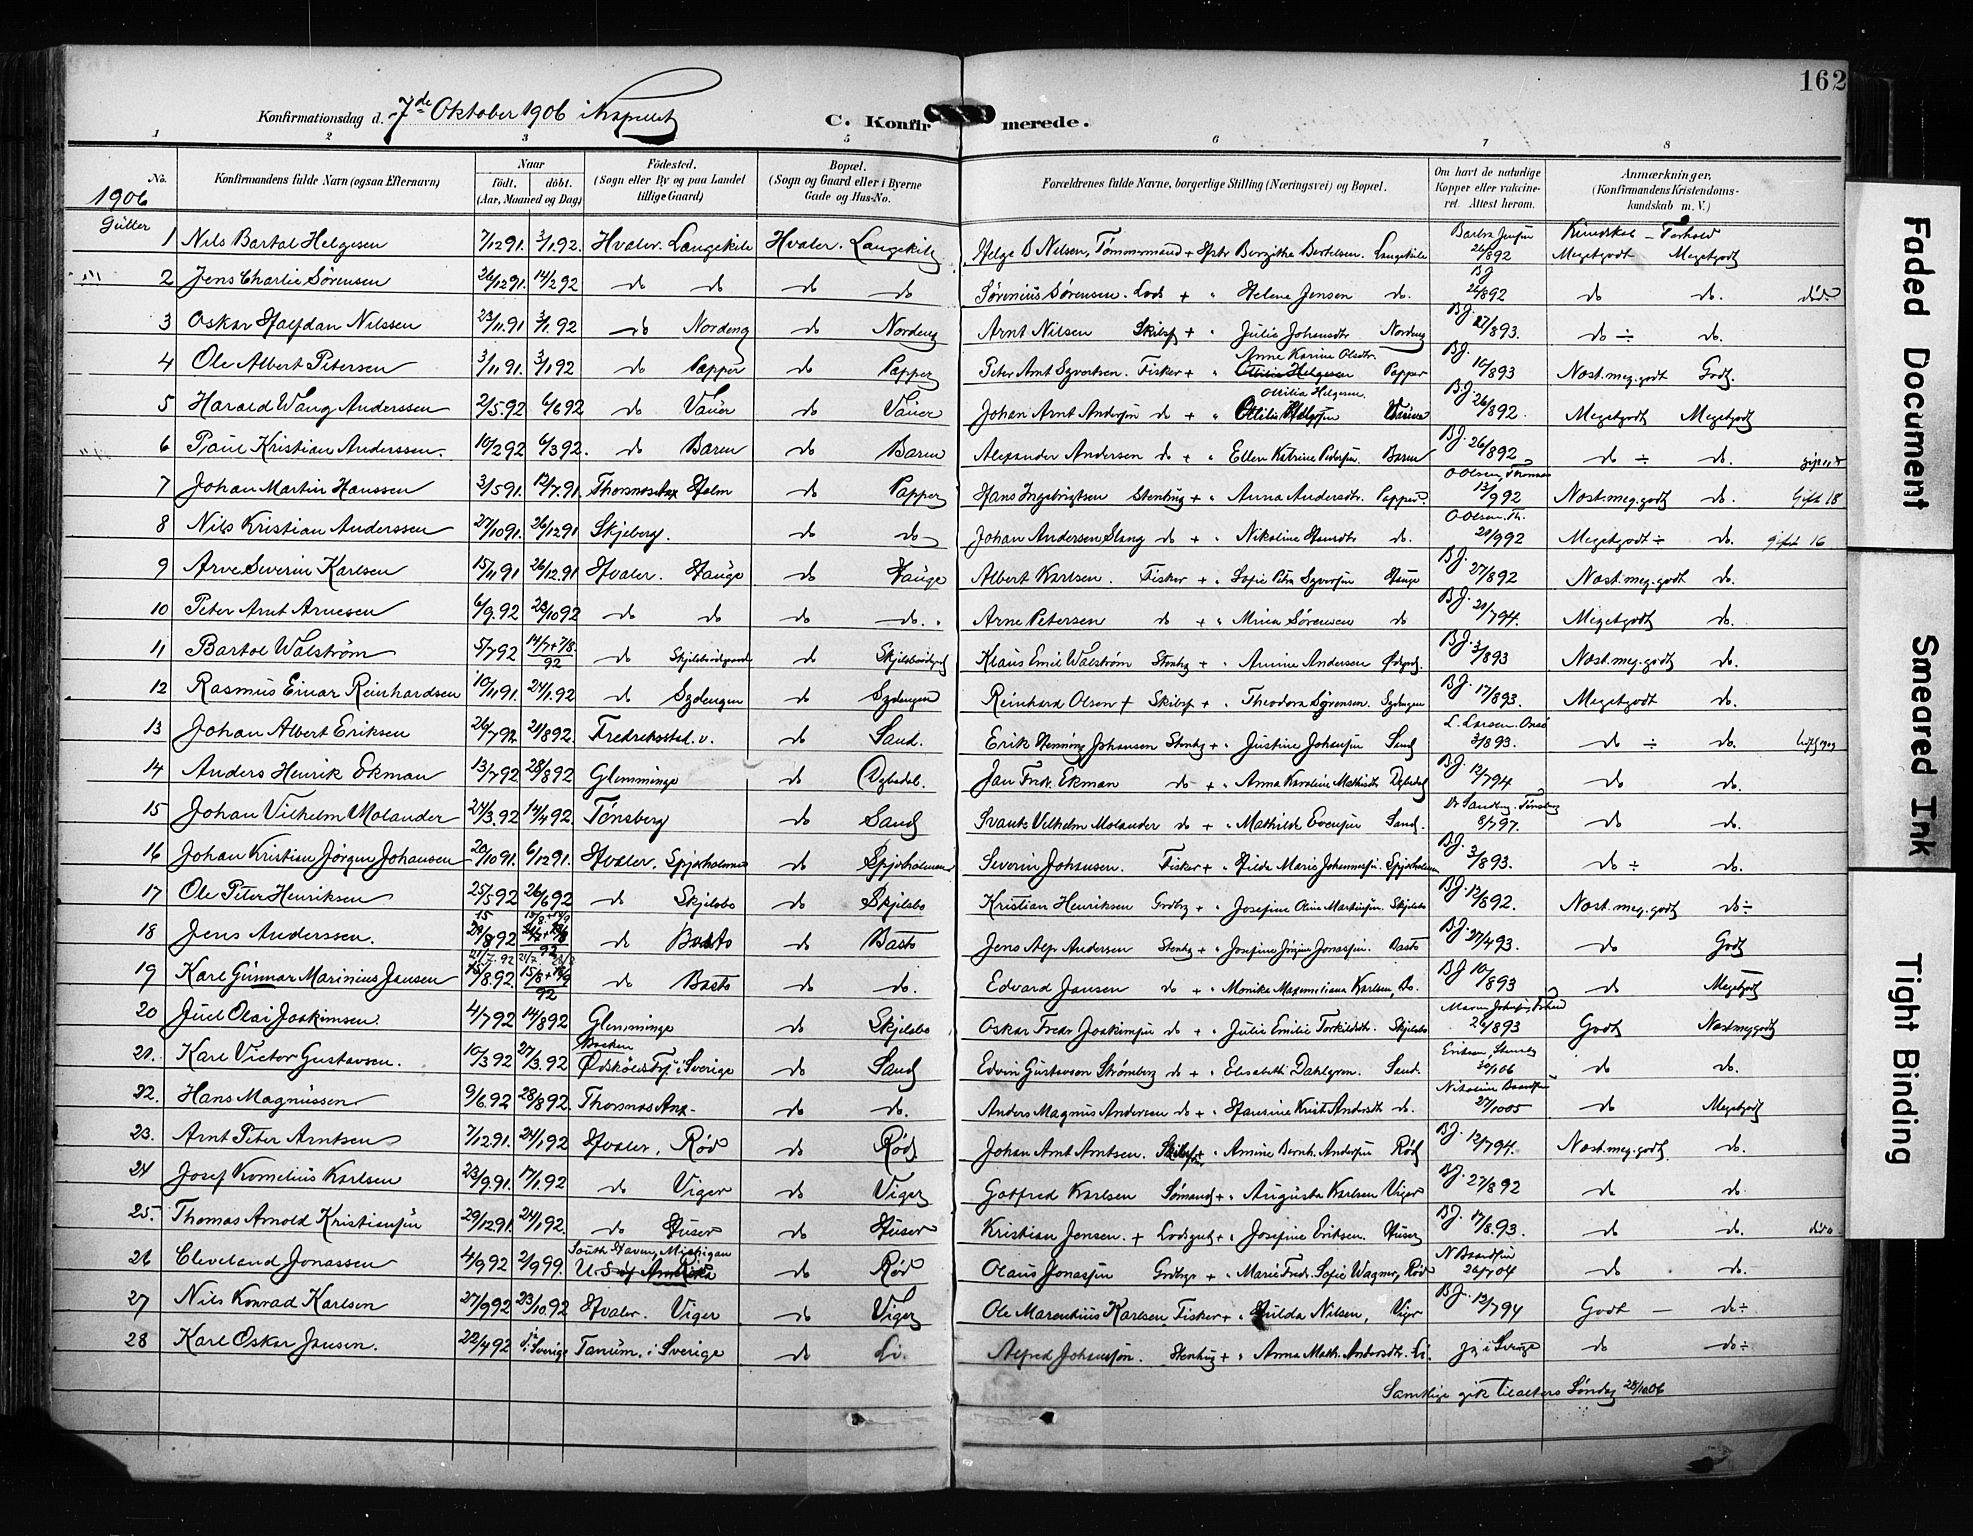 162
Konfirmationsdag d. 7de Oktober 1906 i Kapellet C. Konfirmerede.
1 2 3 5 6 7 8
No. Konfirmandens fulde Navn (ogsaa Efternavn) Naar födt. döbt. (Aar, Maaned og Dag) Födested. (Sogn eller By og paa Landet tillige Gaard) Bopæl. (Sogn og Gaard eller i Byerne Gade og Hus-No. Forældrenes fulde Navne, borgerlige Stilling (Næringsvei) og Bopæl. Om havt de naturlige Kopper eller vaksineret. Attest herom. Anmærkninger. (Konfirmandens Kristendomskundskab m. V.)
1906
Gutter
1 Nils Bartol Helgesen 7/12 91. 3/1 92. Hvaler. Langekile Hvaler. Langekile Helge B Nielsen, Tømmermand + Hstr Bergithe Bertelsen. Langekile 26/8 92 Kundskab – Forhold Megetgodt Megetgodt
2 Jens Charlie Sørensen 26/12 91 14/2 92 do do do do Sørenius Sørensen. Lods + " Helene Jensen do. BJ 26/8 92 do do. död.
3 Oskar Halfdan Nilssen 23/11 91 3/1 92 do Nordeng do Nordeng Arnt Nilsen Skibsf + " Julie Johansdtr Nordeng BJ. 27/8 93. do ÷ do.
4 Ole Albert Petersen 3/11 91. 3/1 92 do Papper do Papper Peter Arnt Syvertsen. Fisker + " Anne Karine Olsdtr. Papper BJ. 10/8 93 Næst.meg.godt Godt.
5 Harald Wang Anderssen 2/5. 92 6/6 92 do Vauer do Vauer Johan Arnt Andersen do + " Ottilia Helgesen BJ 26/8 92. Megetgodt Megetgodt
6 Paul Kristian Anderssen. 10/2 92 6/3 92. do Baren do Baren Alexander Andersen do + " Ellen Katrine Pedersen. Baren BJ. 26/8 92 do ÷ do.
7 Johan Martin Hanssen 3/5 91. 12/7. 91. Thorsnes Anx Holm do Papper Hans Ingebrigtsen Stenhug + " Anna Andersdtr. Papper. O Olsen, Thorsnes 13/9 92 Næst.meg.godt do. Gift 18
8 Nils Kristian Anderssen 27/10 91. 26/12 91 Skjeberg. do do Johan Andersen Slang do + " Nikoline Hansdtr do. O Olsen. Th. 20/9 92 Megetgodt ÷ do. gift 16
9 Arve Severin Karlsen 15/11 91 26/12. 91 Hvaler. Hauge do Hauge Albert Karlsen. Fisker + " Sofie Petra Syversen Hauge BJ. 27/8 92 Næst.meg.godt do.
10 Peter Arnt Arnesen 6/9. 92 23/10 92 do do do do. Arne Petersen do + " Mina Sørensen do BJ. 21/7 94. Megetgodt do.
11 Bartol Walstrøm 5/7 92 14/7 + 7/8. 92 do Skjelsbo do Skjelsbo Klaus Emil Walstrøm Stenhg + " Amine Andersen BJ. 3/8 93 Næst.meg.godt do.
12 Rasmus Einar Reinhardsen 10/11 91. 24/1. 92 do Sydengen do Sydengen Reinhard Olsen + Skibsf + " Theodora Sørensen. Sydengen BJ. 17/8 93. Megetgodt do.
13 Johan Albert Eriksen 26/7 92 21/8 92. Fredrikstad. v. do Sand. Erik Henning Johansen Stenhg + " Justine Johansen Sand L. Larsen. Onsø 3/8 93. do ÷ do.
14 Anders Henrik Ekman 13/7 92 28/8 92 Glemminge do Dybedal. Jan Fredr. Ekman do + " Anna Karoline Mathisdtr Dybedal BJ. 12/7 94 do do.
15 Johan Vilhelm Molander 24/3. 92 14/4 92. Tønsberg do Sand Svante Vilhelm Molander do + " Mathilde Evensen Sand. Dr Sandberg. Tønsberg 8/7 97. do do.
16 Johan Kristian Jørgen Johansen 20/10 91. 6/12 91. Hvaler. Spjærholmen do Spjærholmen Severin Johansen. Fisker + " Hilda Marie Johannessen. Spjærholmen BJ. 3/8 93. do ÷ do.
17 Ole Peter Henriksen 25/5 92 26/6 92 do Skjelsbo do Skjelsbo Kristian Henriksen Grdbg + " Josefine Oline Martinsen. Skjelsbo BJ. 12/8 92. Næst.meg.godt do ÷
18 Jens Anderssen. do Basto do Basto Jens Alfr Andersen Stenhg + " Josefine Jonassen. Basto BJ. 27/4 93. do Godt
19 Karl Gunnar Marinius Jansen do Basto do do. Edvard Jansen do + " Monika Maximiliana Karlsen, do. BJ 10/8 93 do Megetgodt
20 Juel Olai Joakimsen. 4/7 92 14/8 92 Glemminge do Skjelsbo Oskar Fredr Joakimsen do + " Julie Emilie Torkildsdtr. Skjelsbo 26/8 93 Godt Næstmeggodt
21. Karl Victor Gustavsen. 10/3 92 27/3. 92 Backen Ödskölds i Sverige do Sand Edvin Gustavson Strømberg do + " Elisabeth Dahlgren. Sand 30/1 06 do do.
22. Hans Magnussen 9/6. 92 28/8 92. Thorsnes Anx. do do. Anders Magnus Andersen do + " Hansine Krist. Andersdtr do. Nikoline Baardsen 27/10 05 do Megetgodt
23. Arnt Peter Arntsen 7/12. 91. 24/1 92 Hvaler. Rød do Rød Johan Arnt Arntsen. Skibsf + " Amine Bernh. Andersen Rød BJ. 12/7 94. Næst.meg.godt. do.
24 Josef Kornelius Karlsen 23/9. 91. 17/1. 92 do Viger do Viger Gotfred Karlsen Sømand + " Augusta Karlsen Viger BJ. 27/8 92 do do.
25. Thomas Arnold Kristiansen 29/12 91. 24/1 92. do Huser do Huser Kristian Jensen. + Lodsgut + " Josefine Eriksen. Huser BJ. 17/8. 93. do do. död
26 Cleveland Jonassen 4/9 92 2/9 99. South Haven, Michigan U.S. of Amerika do Rød Olaus Jonassen Grdbgr + " Marie Fredr. Sofie Wagner, Rød N Baardsen 26/7 04 do do.
27 Nils Konrad Karlsen 27/9 92 23/10. 92 Hvaler. Viger do Viger Ole Marentius Karlsen Fisker + " Hulda Nilsen, Viger BJ. 12/7 94 Godt — do ÷
28 Karl Oskar Jansen. 22/4 92 i Sverige Tanum. i Sverige do Li. Alfred Johansen. Stenhug + " Anna Math. Andersdtr. Li. ja, i Sverige do do ÷
Samtlige gik til alters Søndag 28/10 06
Faded Document
Smeared Ink
Tight Binding